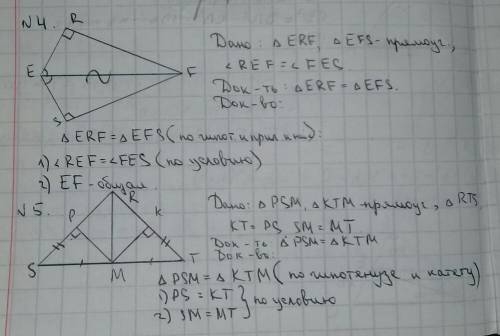 №4.
R
E
F
S
Дано: △ERF, △EFS - прямоуг.,
∠REF = ∠FES.
Док-ть: △ERF = △EFS.
Док-во:
△ERF = △EFS (по гипот. и прил.):
1) ∠REF = ∠FES (по условию)
2) EF - общая.
№5.
R
P
K
S
M
T
Дано: △PSM, △KTM - прямоуг, △RTS,
KT = PS, SM = MT
Док-ть: △PSM = △KTM
Док-во:
△PSM = △KTM (по гипотенузе и катету)
1) PS = KT } по условию
2) SM = MT